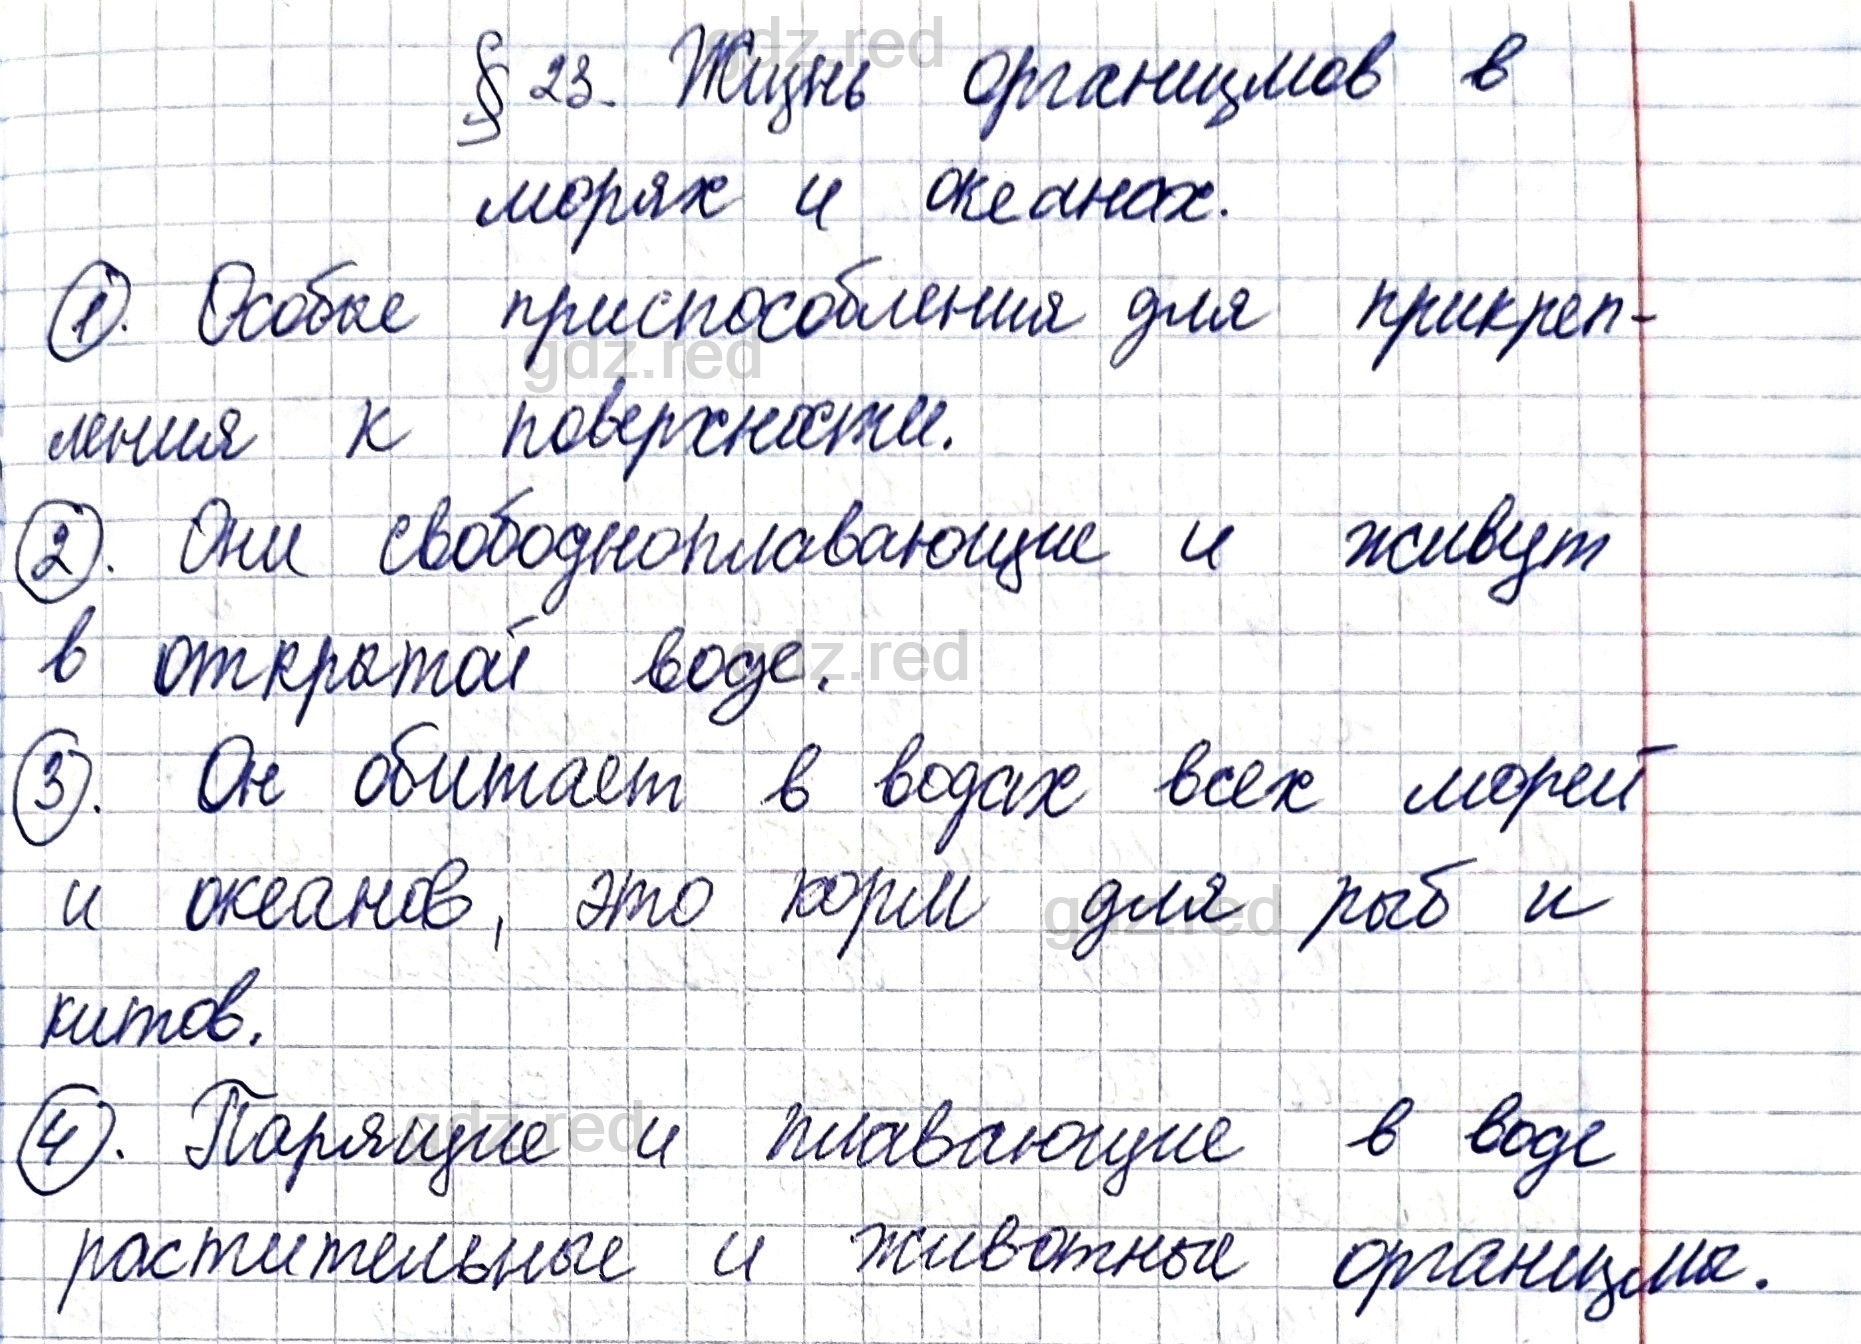 § 23. Жизнь организмов в
морях и океанах.
1. Особые приспособления для прикреп-
ления к поверхности.
2. Они свободноплавающие и живут
в открытой воде.
3. Он обитает в водах всех морей
и океанов, это корм для рыб и
китов.
4. Парящие и плавающие в воде
растительные и животные организмы.
gdz.red
gdz.red
gdz.red
gdz.red
gdz.red